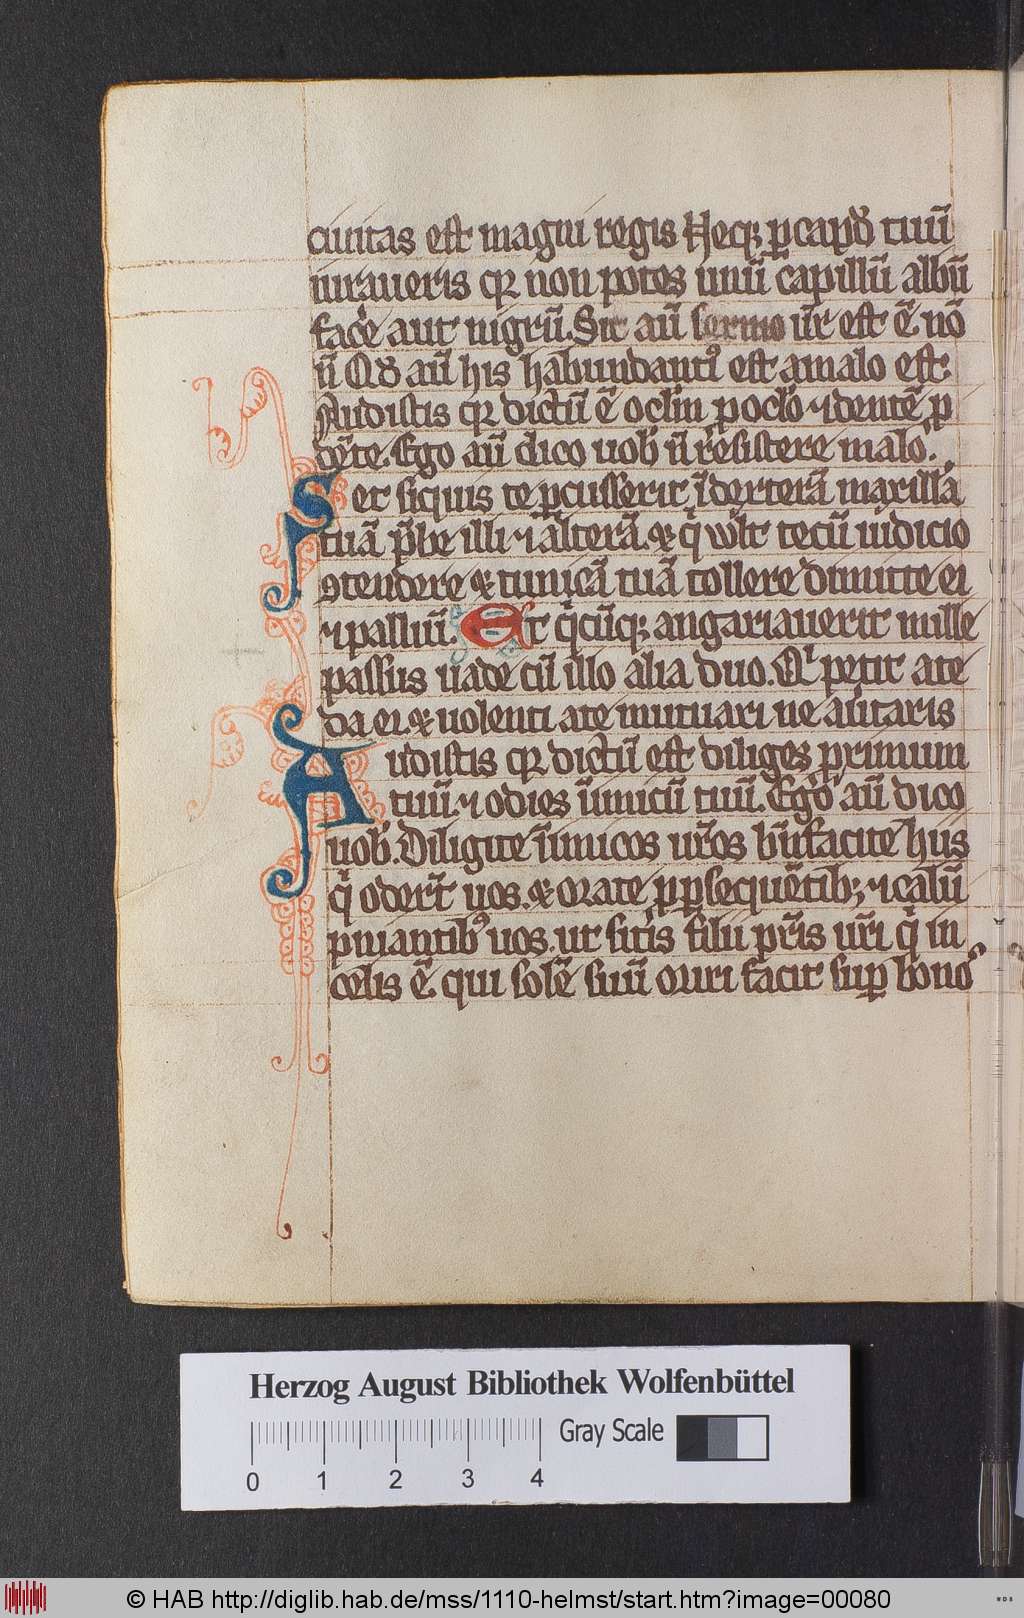 ciuitas est magni regis Neq; ꝑ capđ tuū
iuraueris qꝛ non potes unū capillū albū
fac̓e aut nigrū. Sit aū sermo ur̄ est ē nō
n̄ Qđ aū his habundantiꝰ est a malo est
Audistis qꝛ dictū ē oclm̄ ꝓ oclo ⁊ dentē ꝓ
dēte. Ego aū dico uob̓ n̄ resistere malo.
Set siquis te ꝑcusserit ī dexterā maxillā
tuā p̄be illi ⁊ alterā. ⁊ qͥ wlt tecū iudicio
ꝯtendere ⁊ tunicā tuā tollere dimitte ei
⁊ palliū. Et qͥcūq; angariauerit mille
passus uade cū illo alia duo. Qͥ petit a te
da ei ⁊ uolenti a te mutuari ne aūtaris
Audistis qꝛ dictū est diliges ꝓximum
tuū. ⁊ odies īimicū tuū. Ego aū dico
uob̓. Diligite īimicos ur̄os bn̄facite hiis
qͥ oder̄t uos. ⁊ orate ꝓ ꝑsequētib; ⁊ calū
pniantibꝰ uos. ut sitis filii pr̄is ur̄i qͥ in
celis ē. qui solē suū oriri facit suꝑ bonoꝰ
Herzog August Bibliothek Wolfenbüttel
0 1 2 3 4 Gray Scale
© HAB http://diglib.hab.de/mss/1110-helmst/start.htm?image=00080